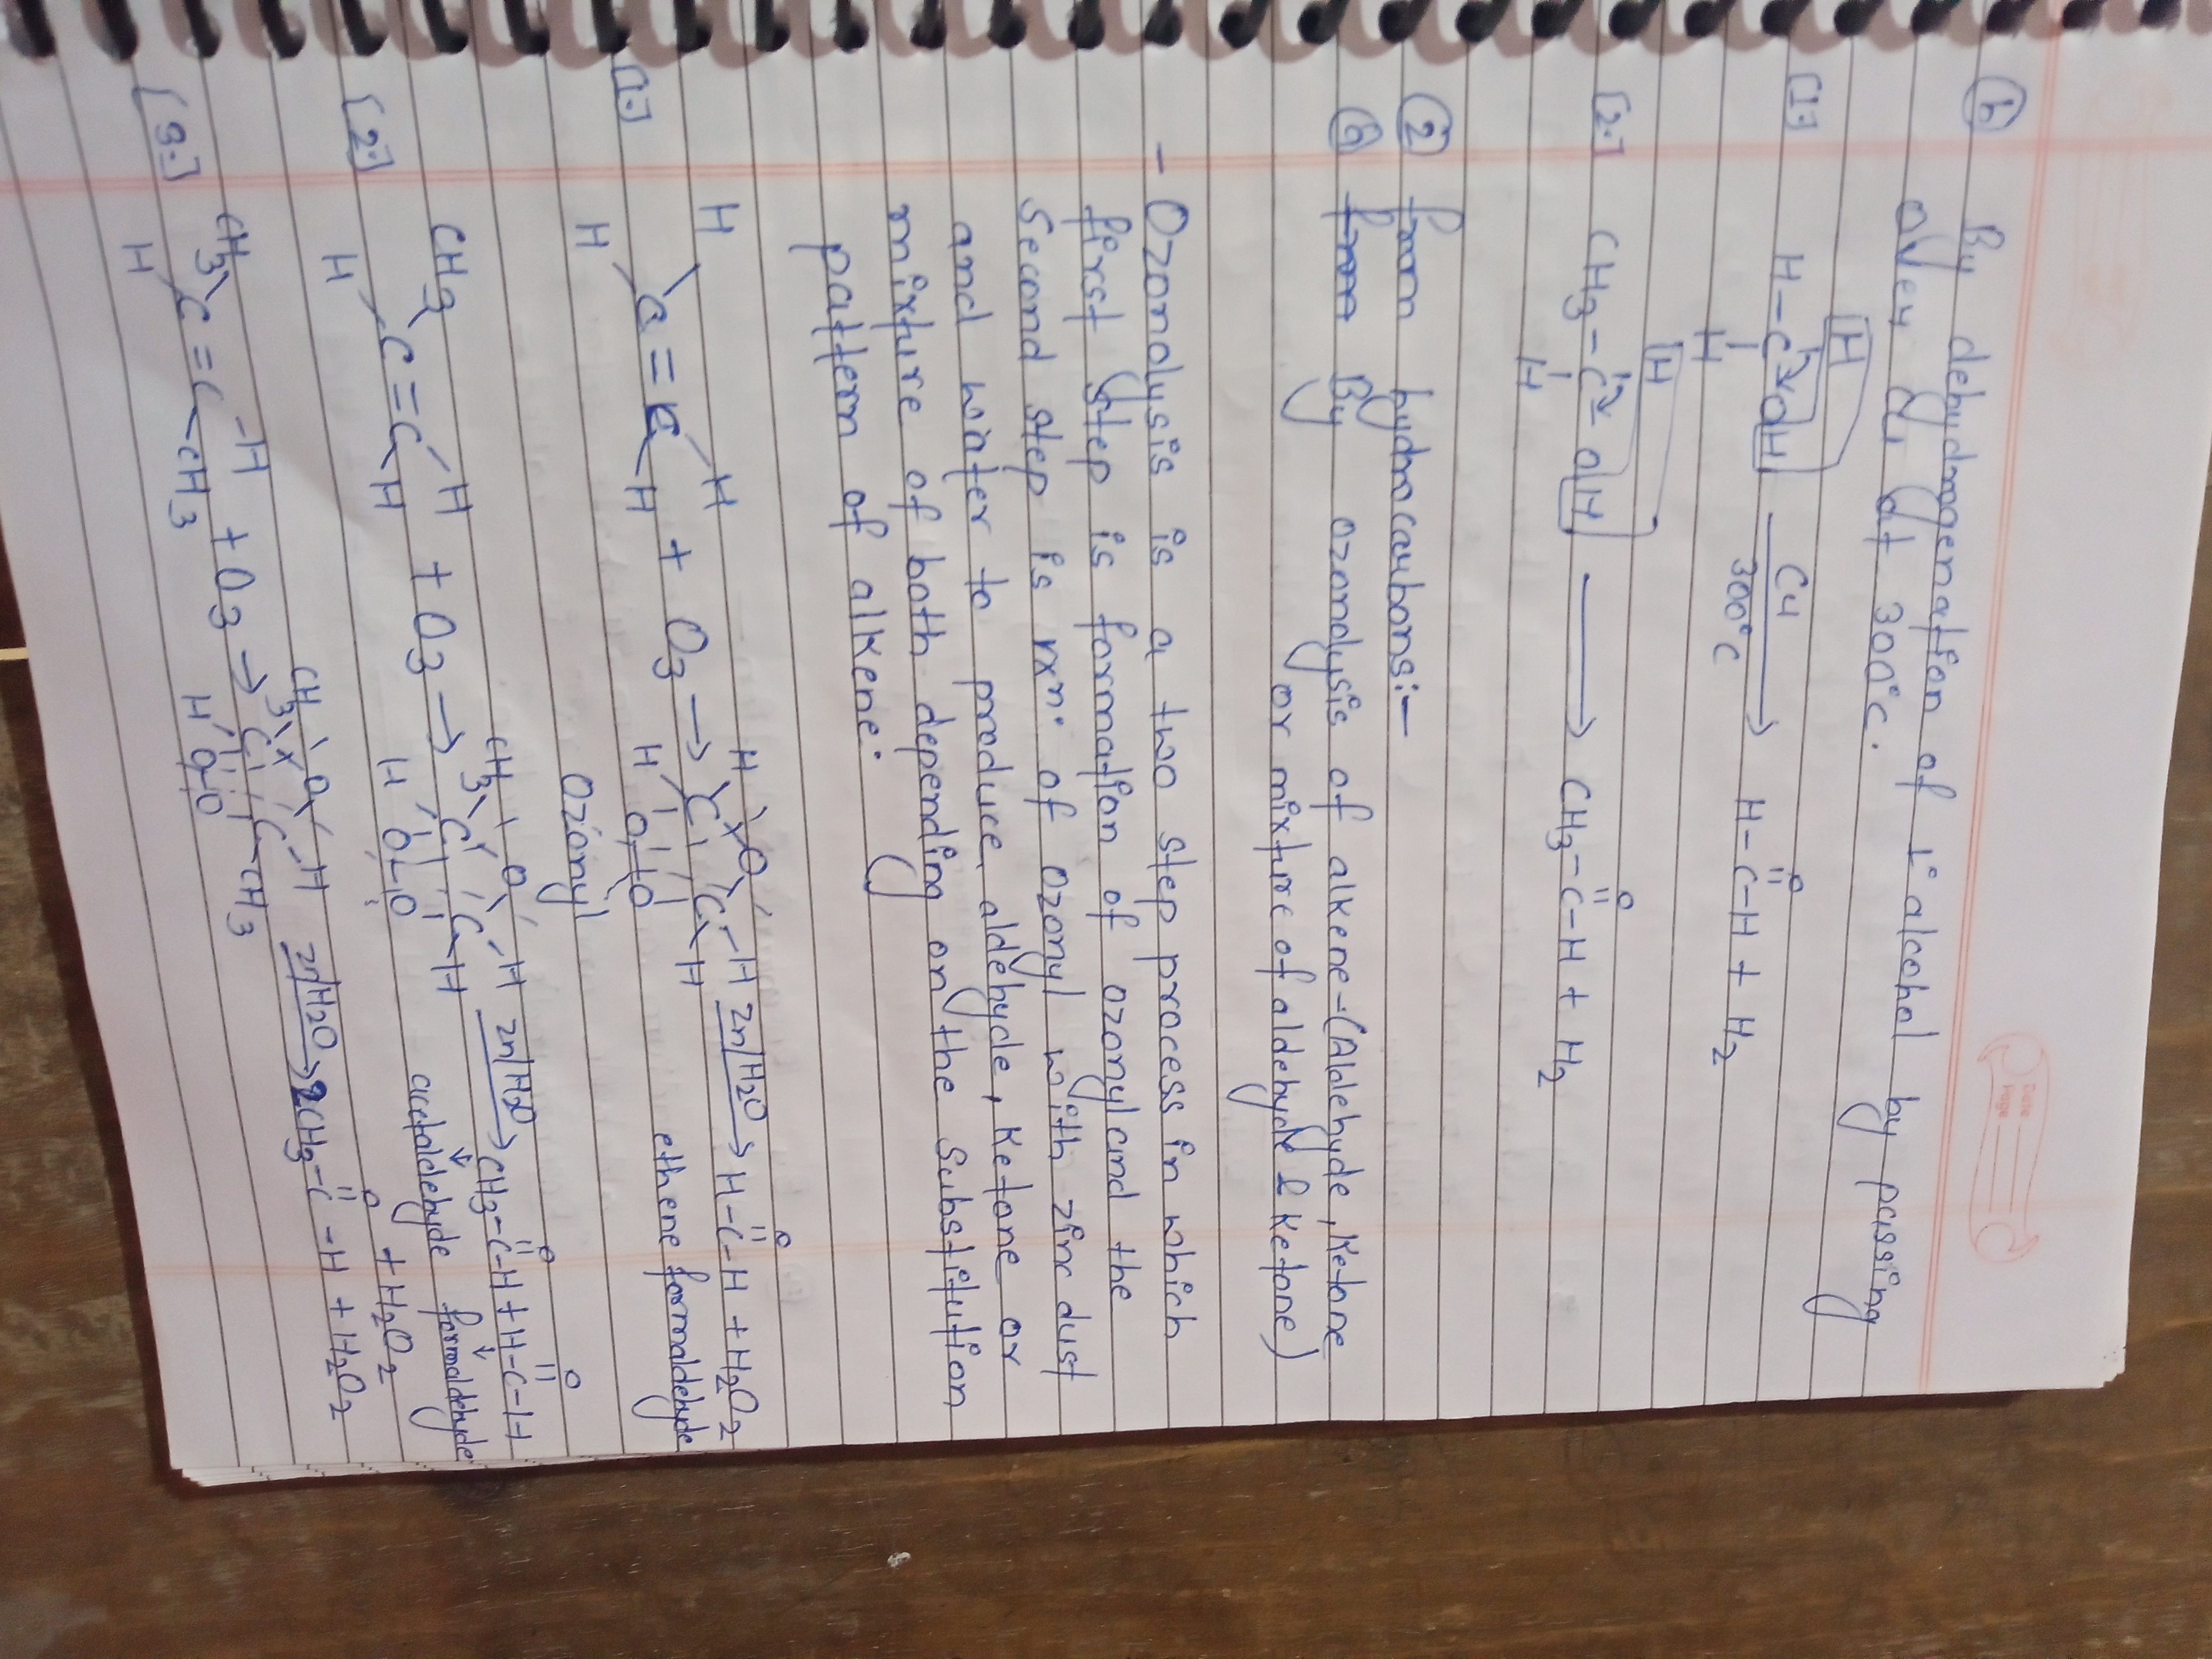 Date
Page
(b) By dehydrogenation of 1° alcohol by passing
over Cu at 300°C.
H
[1.] H-C-OH Cu 300°C → H-C-H + H2
O
H
H
[2.] CH3-C-OH → CH3-C-H + H2
O
H
(2) from hydrocarbons:-
By ozonolysis of alkene-(Aldehyde, Ketone
or mixture of aldehyde & Ketone)
- Ozonolysis is a two step process in which
first step is formation of ozonyl and the
second step is rxn. of ozonyl with zinc dust
and water to produce aldehyde, Ketone or
mixture of both depending on the Substitution
pattern of alkene:
H H H O H O
[1.] C=C + O3 → C C Zn|H2O → H-C-H + H2O2
H H H O-O H ethene formaldehyde
Ozonyl
CH3 H CH3 O H O O
[2.] C=C + O3 → C C Zn|H2O → CH3-C-H + H-C-H
H H H O-O H acetaldehyde formaldehyde
+ H2O2
CH3 H CH3 O H O
[3.] C=C + O3 → C C Zn|H2O → 2CH3-C-H + H2O2
H CH3 H O-O CH3